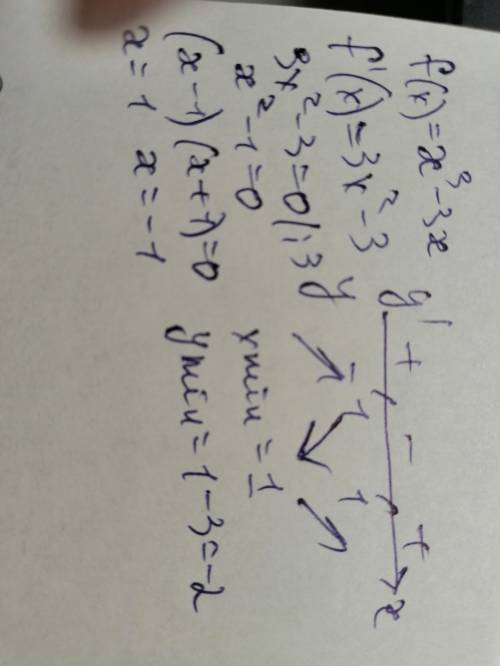 f(x)=x³-3x
f'(x)=3x²-3
3x²-3=0/:3
x²-1=0
(x-1)(x+1)=0
x=1 x=-1
y' + - + x
y -1 1
xmin=1
ymin=1-3=-2